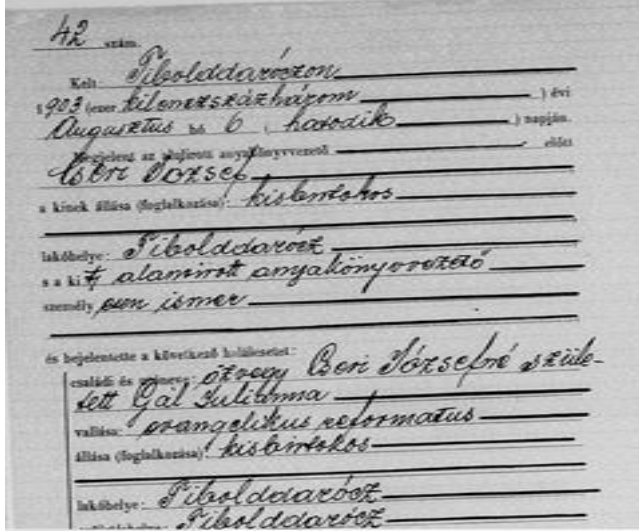 42 szám.
Kelt: Tibolddaróczon
1903 (ezer kilenczszázhárom) évi
Augusztus hó 6 (hatodik) napján.
Megjelent az alulirott anyakönyvvezető előtt
Cseri József
a kinek állása (foglalkozása): kisbirtokos
lakóhelye: Tibolddarócz
s a ki t alamirott anyakönyvvezető
személy esen ismer
és bejelentette a következő halálesetet:
családi és utóneve: özvegy Cseri Józsefné szüle-
tett Gál Julianna
vallása: evangelikus reformatus
állása (foglalkozása): kisbirtokos
lakóhelye: Tibolddarócz
Tibolddarócz